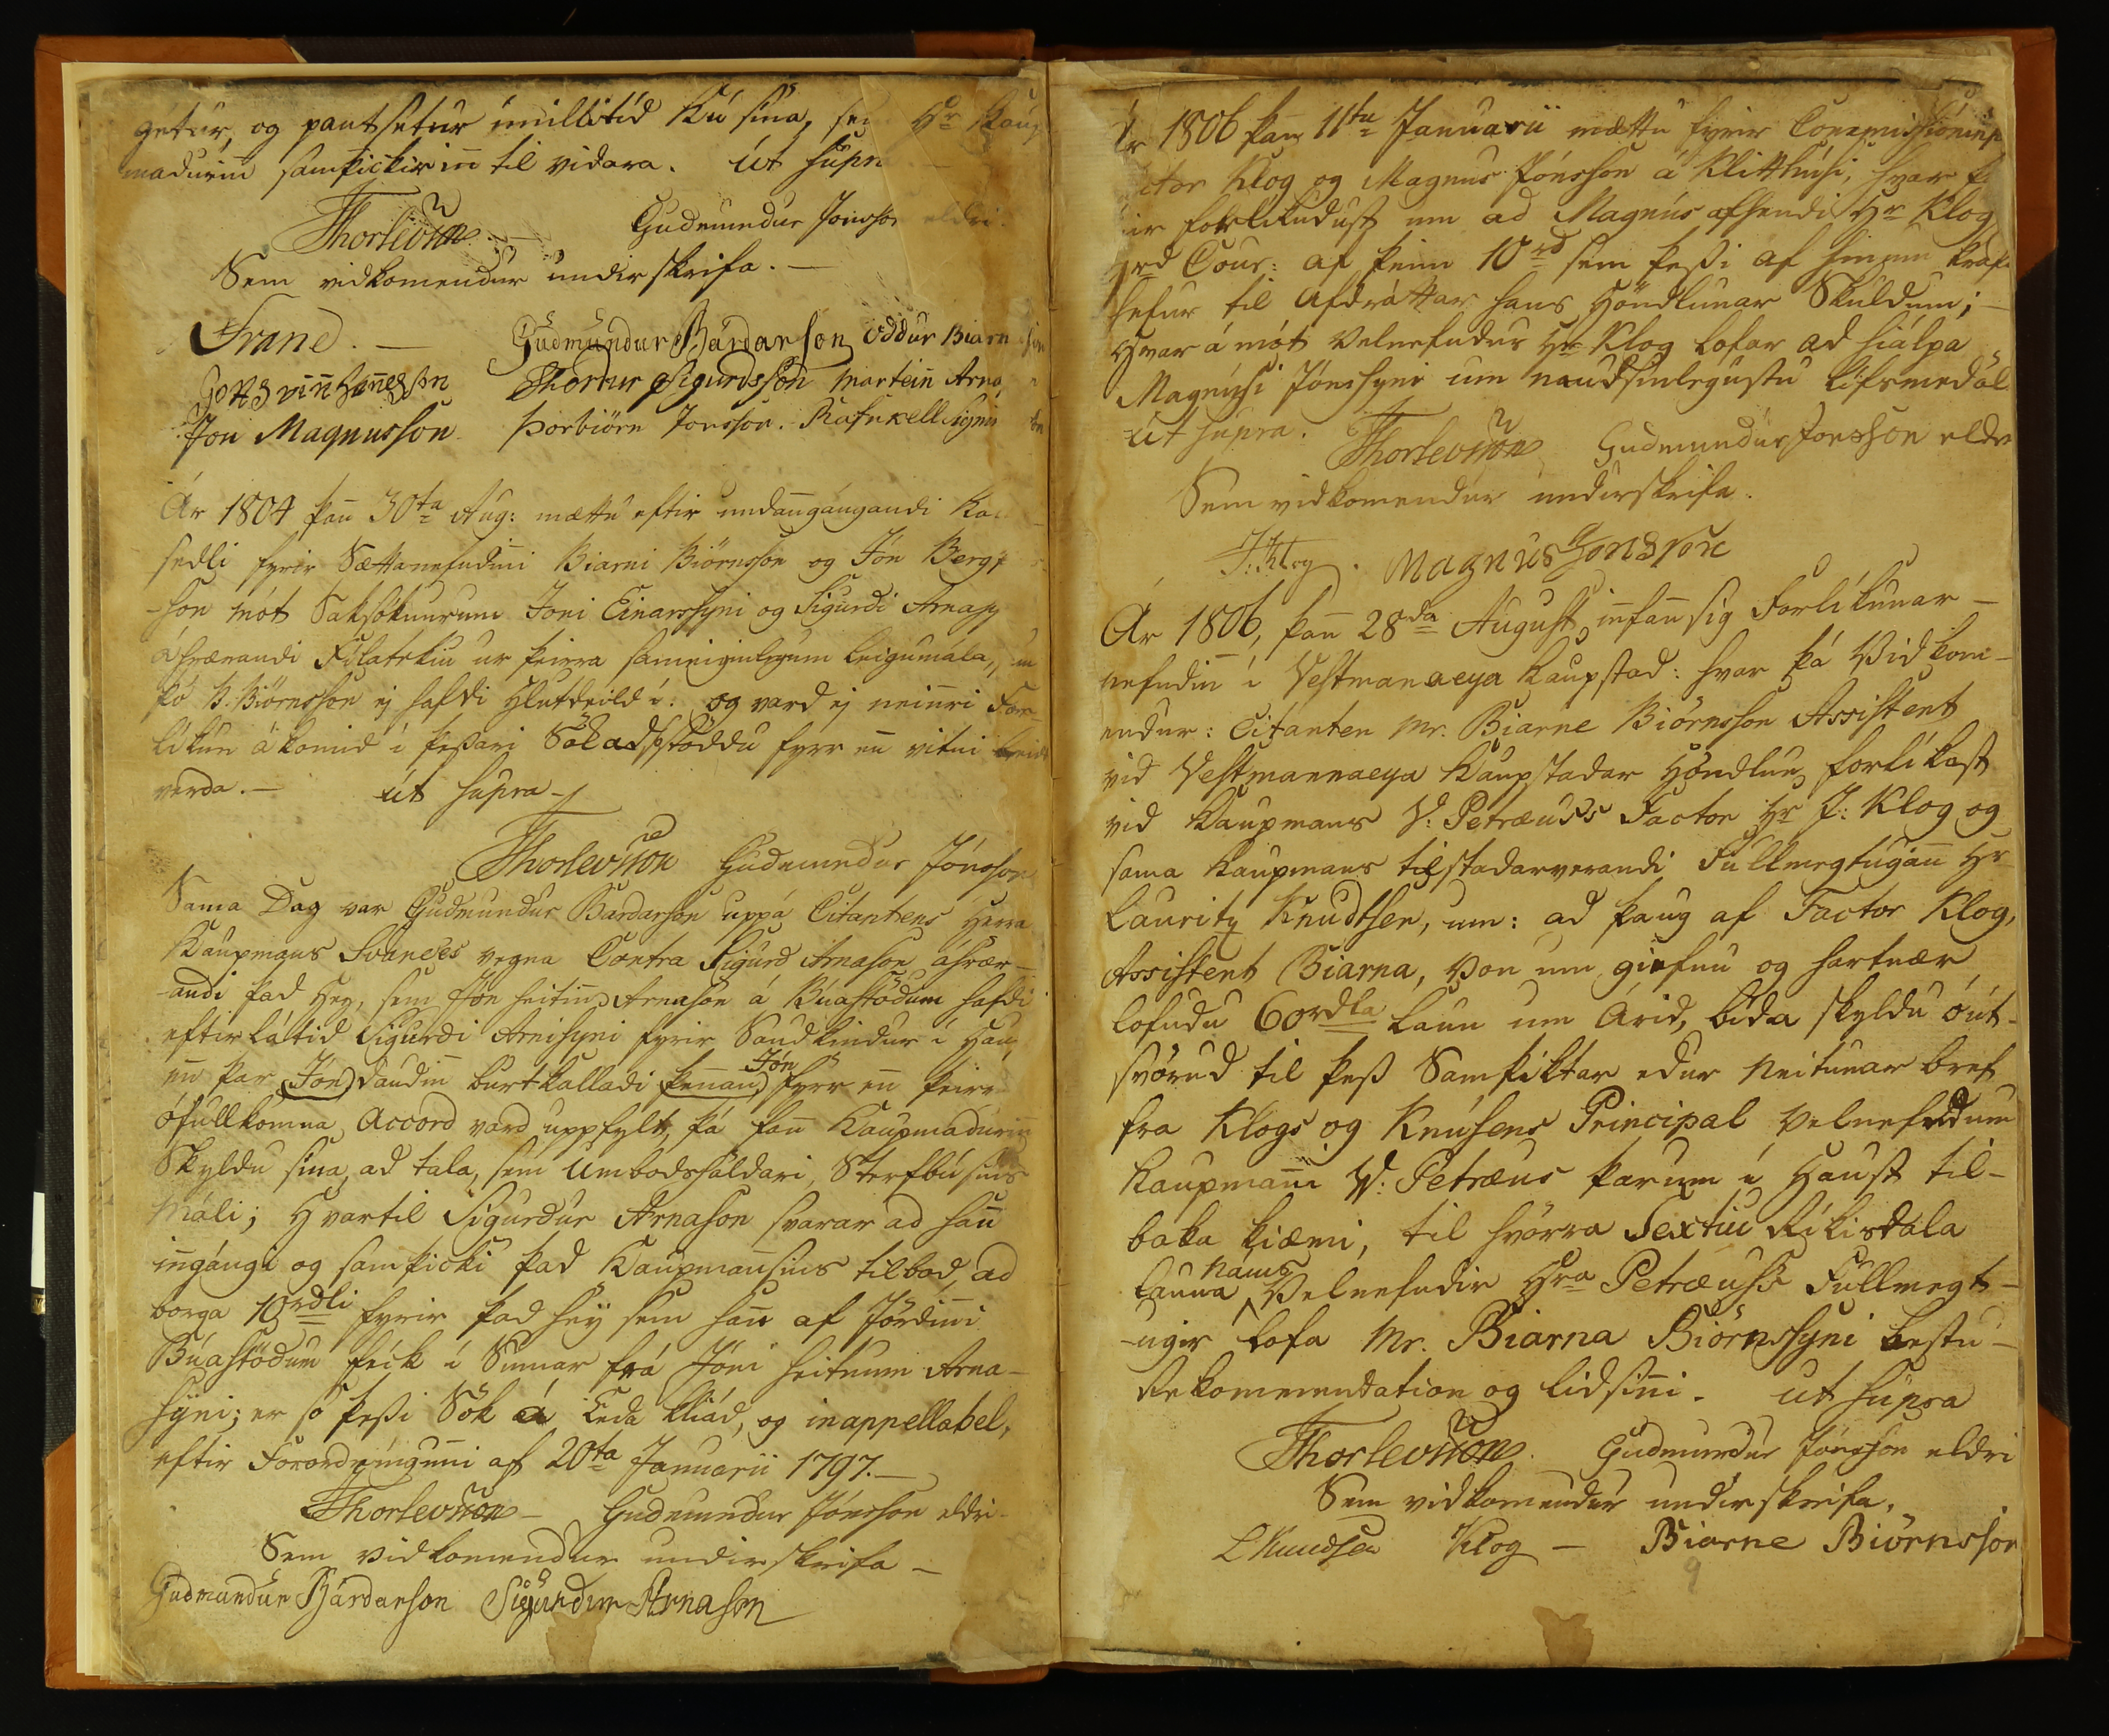 getur, og pantsetur imillitid Kú sína, sem Hr Kaup
madurinn samþickir inn til vidara. Út supra
Thorlevsson Gudmundur Jonsson eldri
Sem vidkomendur undirskrifa.
Svane. Gudmundur Bárdarson Oddur Biarnason
Gottsvinn Hannesson Thordur Sigurdsson Martein Arna
Jon Magnusson Þorbiörn Jonsson. Rafnkell
Ár 1804 þann 30ta Aug: mættu eftir undangángandi Kall
sedli fyrir Sættanefndinni Biarni Biörnsson og Jón Bergþ
-son mót Saksókurum Joni Einarssyni og Sigurdi Arnas
áhrærandi Fílatekiu ur þeirra sameiginlegum leigumála,
þó B. Biörnsson ej hafdi Hlutdeild í: og vard ej neinri For-
líkun ákomid í þessari Sök adsstöddu fyrr enn vitni leidd
verda. — út supra
Thorlevsson Gudmundur Jónsson
Sama Dag var Gudmundur Bardarson uppá Citantens Herra
Kaupmans Svanes vegna Contra Sigurd Arnason áhrær-
-andi þad Hey, sem Jón heitinn Arnason á Búastödum hafdi
eftirlátid Sigurdi Arnasyni fyrir Saudkindur í Haus
enn þar (Jón) daudinn burtkalladi þennan Jón fyrr enn þeirra
ófullkomna Accord vard uppfylt, þá fann Kaupmadurinn
Skyldu sína, ad tala, sem Umbodshaldari, Sterfbúsins
máli; Hvartil Sigurdur Arnason svarar ad hann
inngángi og samþicki þad Kaupmannsins tilbod, ad
borga 10rdli fyrir þad hey sem hann af Jördinni
Búastödum féck í Sumar frá Jóni heitnum Arna-
syni; er so þessi Sök á Enda kliád, og inappellabel,
eftir Forordningunni af 20ta Januarii 1797.—
Thorlevsson — Gudmundur Jónsson eldri
Sem vidkomendur undirskrifa —
Gudmundur Bárdarson Sigurdur Arnason
Ár 1806 þann 11ta Januarii mættu fyrir Commissioninni
Factor Klog og Magnus Jónsson á Kletthúsi, hvar þ
eir forlíkudust um ad Magnús afhendi Hr Klog
rd Cour: af þeim 10rd sem þessi af hinum krafi
hefur til Afdráttar hans Höndlunar Skuldum; —
Hvar á mót velnefndur Hr Klog lofar ad hiálpa
Magnúsi Jónssyni um naudsinlegustu lífsmedöl
út supra. Thorlevsson Gudmundur Jonsson eldre
Sem vidkomendur undirskrifa.
J. Klog. Magnus Jonsson
Ár 1806, þann 28da August, innfann sig Forlíkunar —
nefndinn í Vestmanaeya Kaupstad: hvar þá Vidkom-
endur: Citanten Mr. Biarne Biörnsson Assistent
vid Vestmannaeya Kaupstadar Höndlun, forlíkast
vid Kaupmans W: Petræuss Factor Hr J: Klog og
sama Kaupmans tilstadarverandi Fullmegtugann Hr
Lauritz Knudtsen, um: ad þaug af Factor Klog,
Assistent Biarna, Von um giefnu og hartnær
lofudu 60rdla Laun um Árid, bída skyldu óút-
svörud til þess Samþiktar edur Neitunar bref
fra Klogs og Knúsens Principal velnefndum
Kaupmanni W: Petræus þarum í Haust til-
baka kiæmi, til hvörra Sextiu Rikisdala
launa Hans Velnefndir Hra Petræuss Fullmegt-
-ugir lofa Mr. Biarna Biörnssyni bestu —
Rekommendation og lidsinni. ut supra
Thorlevsson. Gudmundur Jónsson eldri
Sem vidkomendur undirskrifa,
L Knudsen Klog — Biarne Biörnsson
9